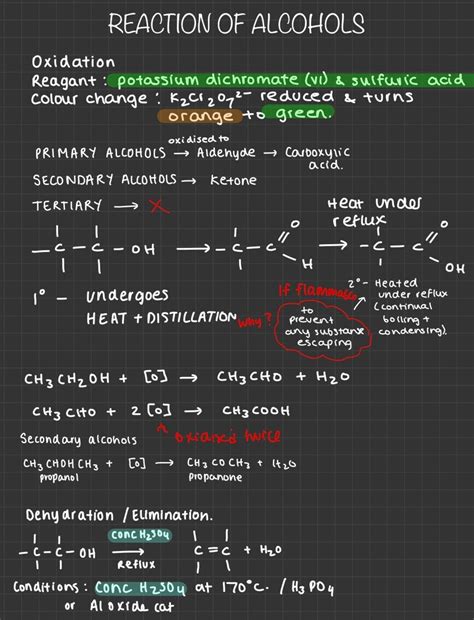 REACTION OF ALCOHOLS
Oxidation
Reagant : potassium dichromate (VI) & sulfuric acid
Colour change : K2Cr2O7²⁻ reduced & turns
orange to green.
oxidised to
PRIMARY ALCOHOLS → Aldehyde → Carboxylic
acid.
SECONDARY ALCOHOLS → Ketone
TERTIARY → X
Heat under
reflux
- C - C - OH → - C - C = O H → - C - C = O OH
1° - undergoes
HEAT + DISTILLATION
why?
If flammable
to
prevent
any substance
escaping
2° - Heated
under reflux
(continual
boiling +
condensing).
CH3CH2OH + [O] → CH3CHO + H2O
CH3CHO + 2[O] → CH3COOH
Secondary alcohols
CH3CHOHCH3 + [O] → CH3COCH3 + H2O
propanol propanone
Dehydration / Elimination.
- C - C - OH conc H2SO4 → C = C + H2O
Reflux
Conditions : Conc H2SO4 at 170°C. / H3PO4
or Al oxide cat